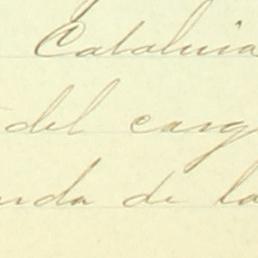 Catalina
del carg
nda de la